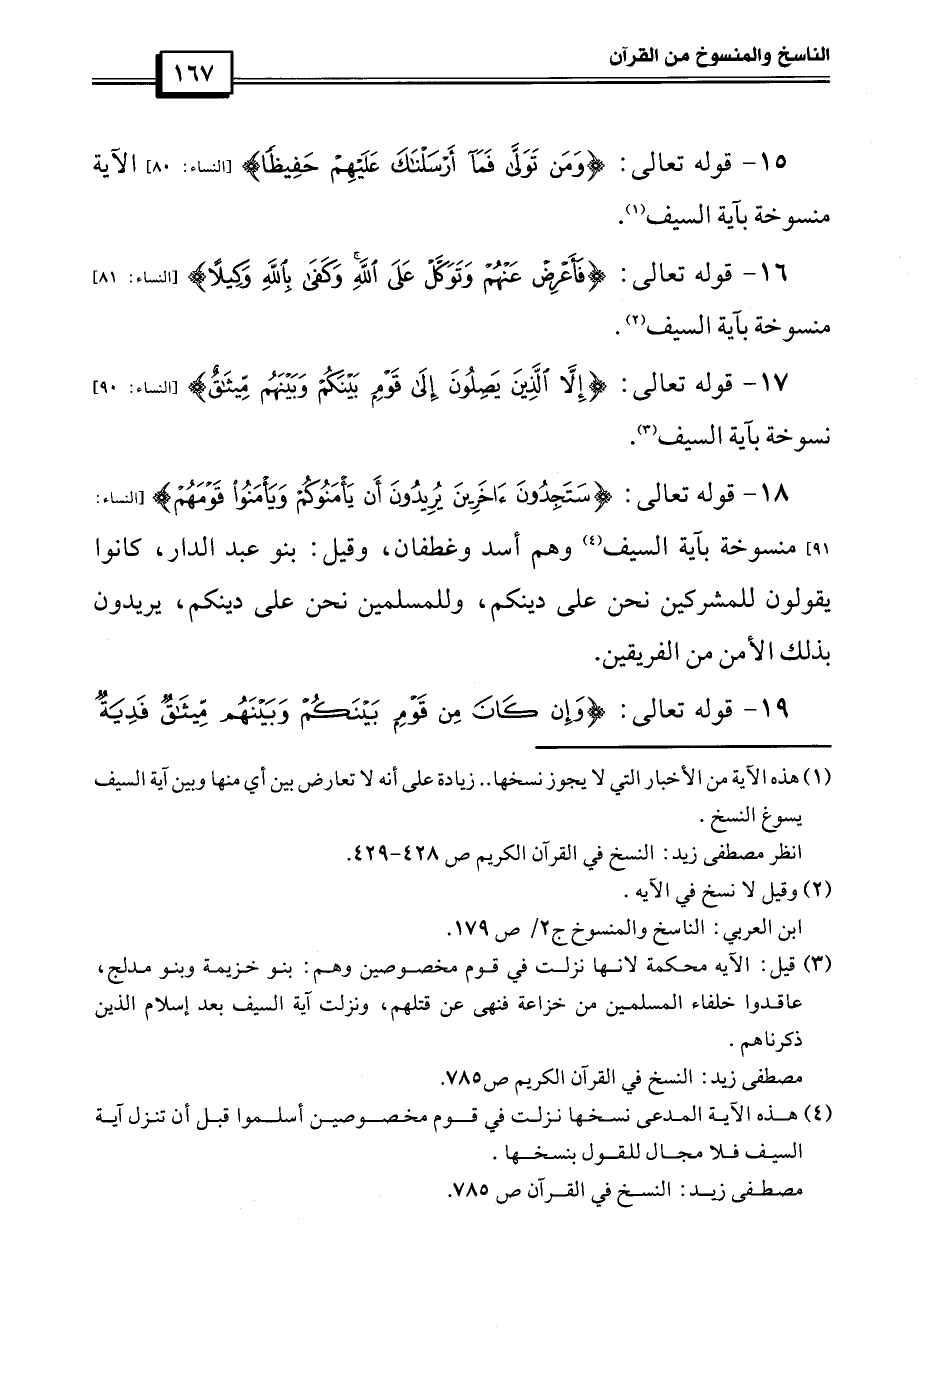 الناسخ والمنسوخ من القرآن
١٦٧
١٥- قوله تعالى: ﴿وَمَن تَوَلَّىٰ فَمَآ أَرْسَلْنَٰكَ عَلَيْهِمْ حَفِيظًا﴾ [النساء: ٨٠] الآية
منسوخة بآية السيف(١).
١٦- قوله تعالى: ﴿فَأَعْرِضْ عَنْهُمْ وَتَوَكَّلْ عَلَى ٱللَّهِ ۚ وَكَفَىٰ بِٱللَّهِ وَكِيلًا﴾ [النساء: ٨١]
منسوخة بآية السيف(٢).
١٧- قوله تعالى: ﴿إِلَّا ٱلَّذِينَ يَصِلُونَ إِلَىٰ قَوْمٍ بَيْنَكُمْ وَبَيْنَهُم مِّيثَٰقٌ﴾ [النساء: ٩٠]
نسوخة بآية السيف(٣).
١٨- قوله تعالى: ﴿سَتَجِدُونَ ءَاخَرِينَ يُرِيدُونَ أَن يَأْمَنُوكُمْ وَيَأْمَنُوا۟ قَوْمَهُمْ﴾ [النساء:
٩١] منسوخة بآية السيف(٤) وهم أسد وغطفان، وقيل: بنو عبد الدار، كانوا
يقولون للمشركين نحن على دينكم، وللمسلمين نحن على دينكم، يريدون
بذلك الأمن من الفريقين.
١٩- قوله تعالى: ﴿وَإِن كَانَ مِن قَوْمٍ بَيْنَكُمْ وَبَيْنَهُم مِّيثَٰقٌ فَدِيَةٌ
(١) هذه الآية من الأخبار التي لا يجوز نسخها.. زيادة على أنه لا تعارض بين أي منها وبين آية السيف
يسوغ النسخ .
انظر مصطفى زيد: النسخ في القرآن الكريم ص ٤٢٨-٤٢٩.
(٢) وقيل لا نسخ في الآيه .
ابن العربي: الناسخ والمنسوخ ج٢/ ص ١٧٩.
(٣) قيل: الآيه محكمة لانها نزلت في قوم مخصوصين وهم: بنو خزيمة وبنو مدلج،
عاقدوا خلفاء المسلمين من خزاعة فنهى عن قتلهم، ونزلت آية السيف بعد إسلام الذين
ذكرناهم .
مصطفى زيد: النسخ في القرآن الكريم ص٧٨٥.
(٤) هذه الآية المدعى نسخها نزلت في قوم مخصوصين أسلموا قبل أن تنزل آية
السيف فلا مجال للقول بنسخها .
مصطفى زيد: النسخ في القرآن ص ٧٨٥.